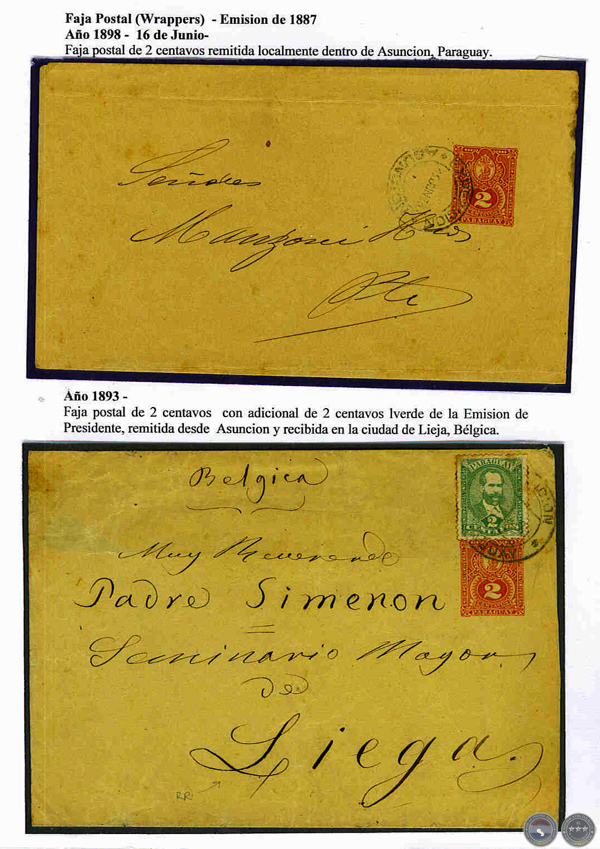 Faja Postal (Wrappers) - Emision de 1887
Año 1898 - 16 de Junio-
Faja postal de 2 centavos remitida localmente dentro de Asuncion, Paraguay.
2
CENTAVOS
PARAGUAY
Señores
Manzoni Hnos
Pte
Año 1893 -
Faja postal de 2 centavos con adicional de 2 centavos lverde de la Emision de
Presidente, remitida desde Asuncion y recibida en la ciudad de Lieja, Bélgica.
Belgica
PARAGUAY
2
CENTAVOS
2
CENTAVOS
PARAGUAY
Muy Reverendo
Padre Simenon
Seminario Mayor
de
Liega.
RR